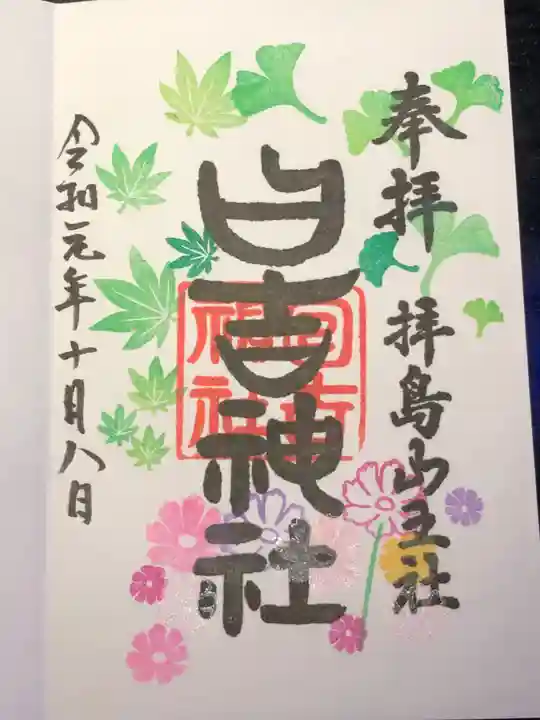 奉拝 拝島山王社
日吉神社
日吉神社
令和元年十月八日